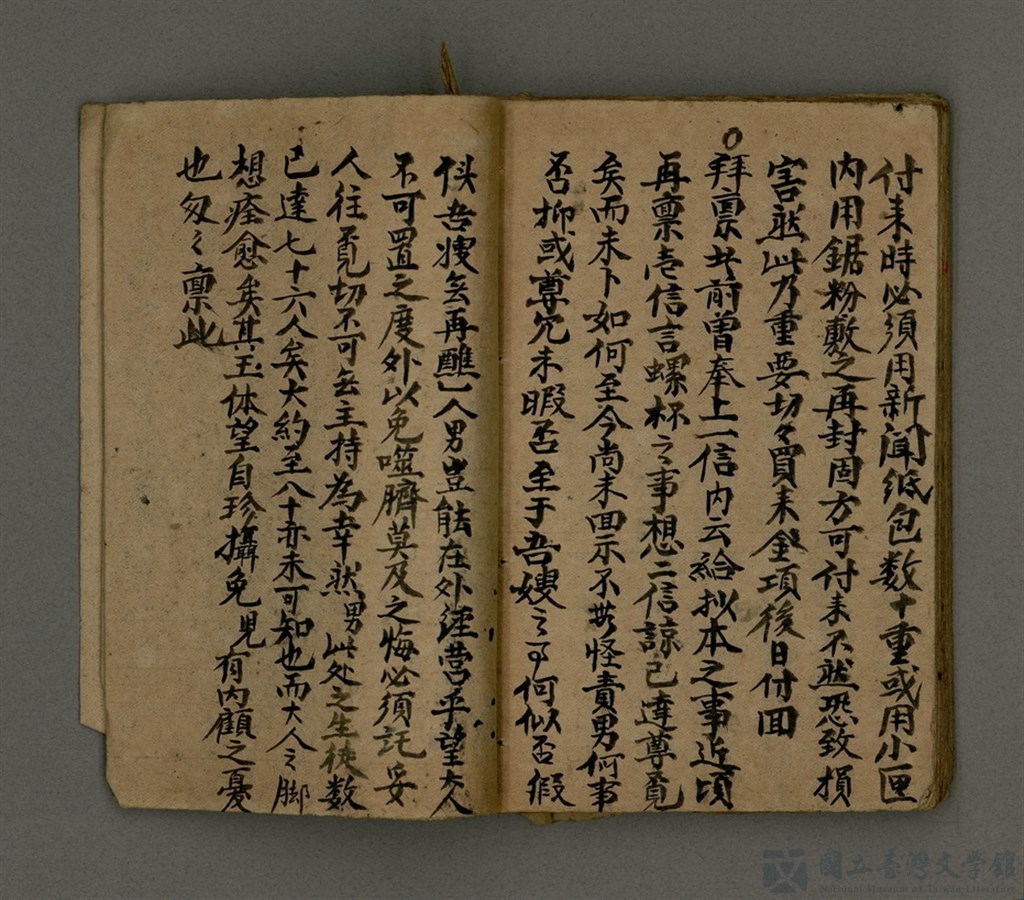 付来時必須用新聞紙包数十重或用小匣
内用鋸粉敷之再封固方可付来不然恐致損
害然此乃重要切々買来金項後日付回
拜禀者前曽奉上一信内云給拟本之事近頃
再禀壱信言螺杯之事想二信諒已達尊覽
矣而未卜如何至今尚未回示不知怪責男何事
否抑或尊冗未暇否至于吾嫂之事何似否假
似吾嫂无再醮人男豈能在外经营乎望大人
不可置之度外以免噬臍莫及之悔必須託妥
人往覓切不可无主持為幸然男此处之生徒数
已達七十六人矣大約至八十亦未可知也而大人之脚
想痊愈矣其玉体望自珍攝免児有内顧之憂
也匆之禀此
國立臺灣文學館
National Museum of Taiwan Literature